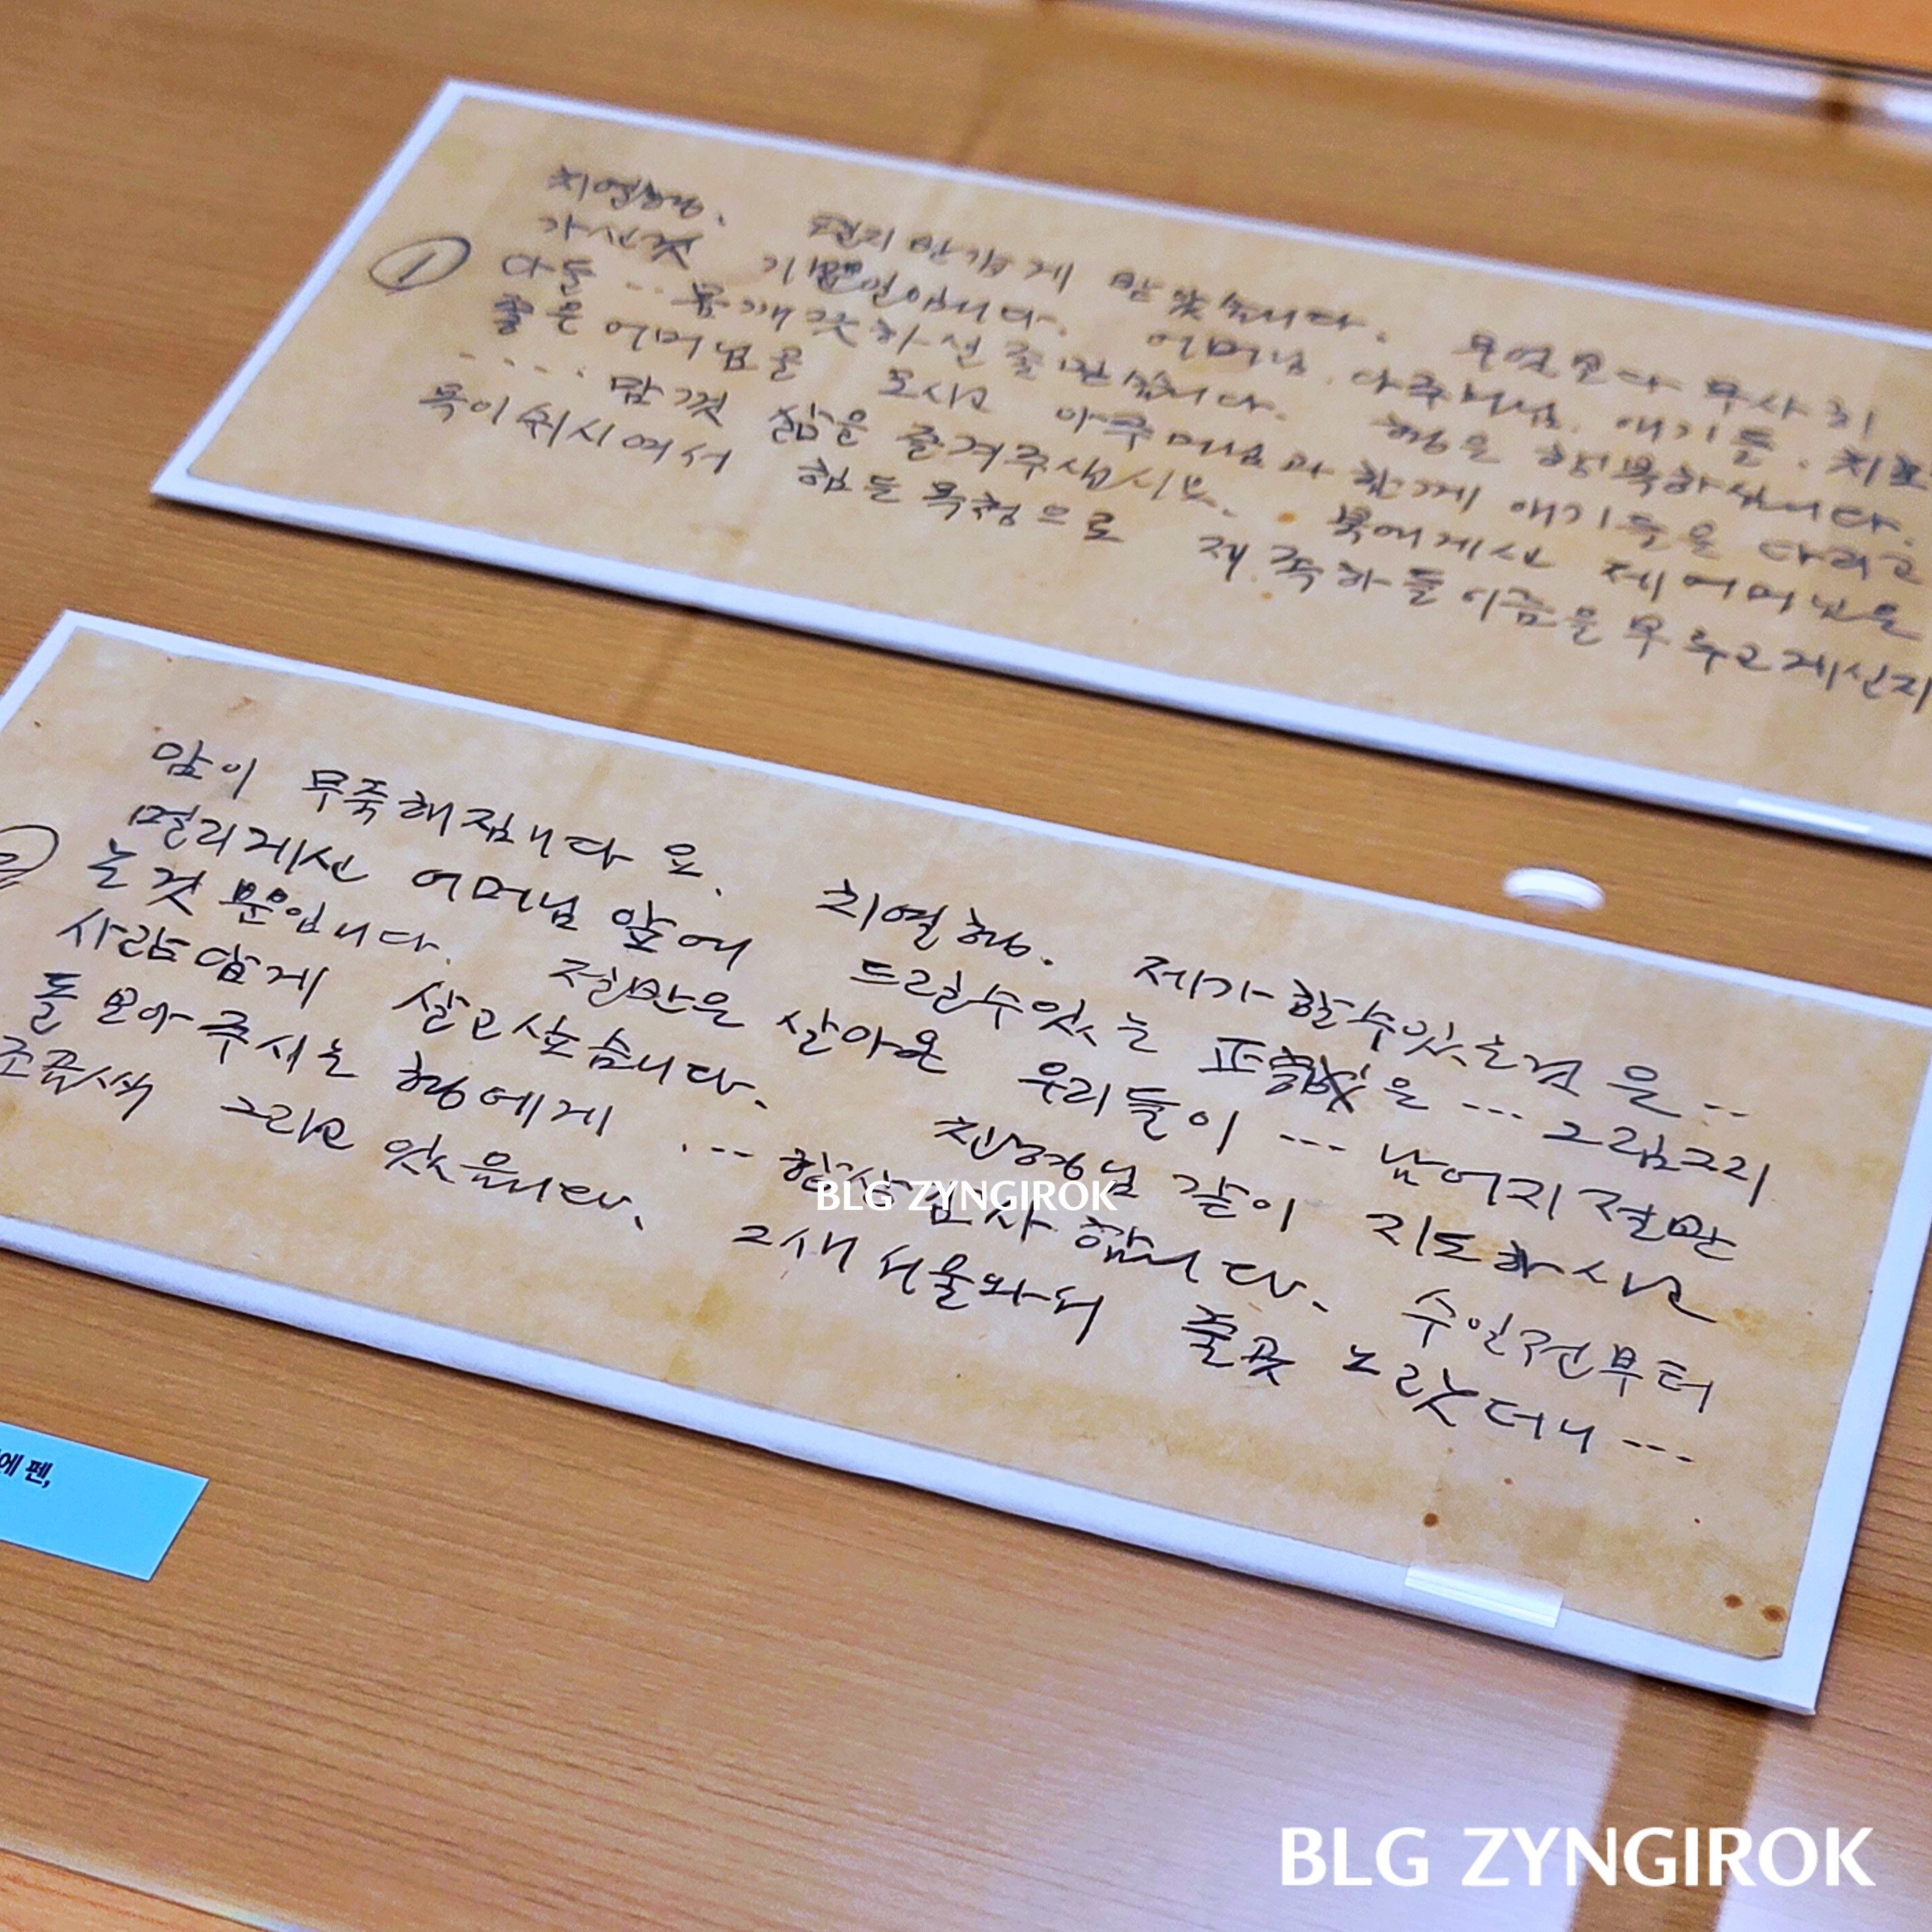 치열형. 편지 반가웁게 받았습니다. 무엇보다 무사히
가신것 기쁜일입니다. 어머님. 아주머님. 애기들. 치호
①
다들... 몸깨끗하신줄 믿습니다. 형은 행복하십니다.
좋은 어머님을 모시고 아주머님과 함께 애기들을 다리고
.... 맘껏 삶을 즐겨주십시요. 북에게신 제어머님은
목이쉬시여서 힘든목청으로 제 족하들 이름을 부루고게신지
맘이 무죽해집니다요. 치열형. 제가할수있는검은..
멀리게신 어머님앞에 드릴수있는 正誠은... 그림그리
는것뿐입니다. 절반은 살아온 우리들이... 남어지절반
사람답게 살고싶습니다. 친형님같이 지도하시고
돌보아주시는 형에게 .... 항상감사합니다. 수일전부터
조곰식 그리고 있읍니다. 그새 서울와서 줄곳 노랏더니...
에 펜,
BLG ZYNGIROK
BLG ZYNGIROK